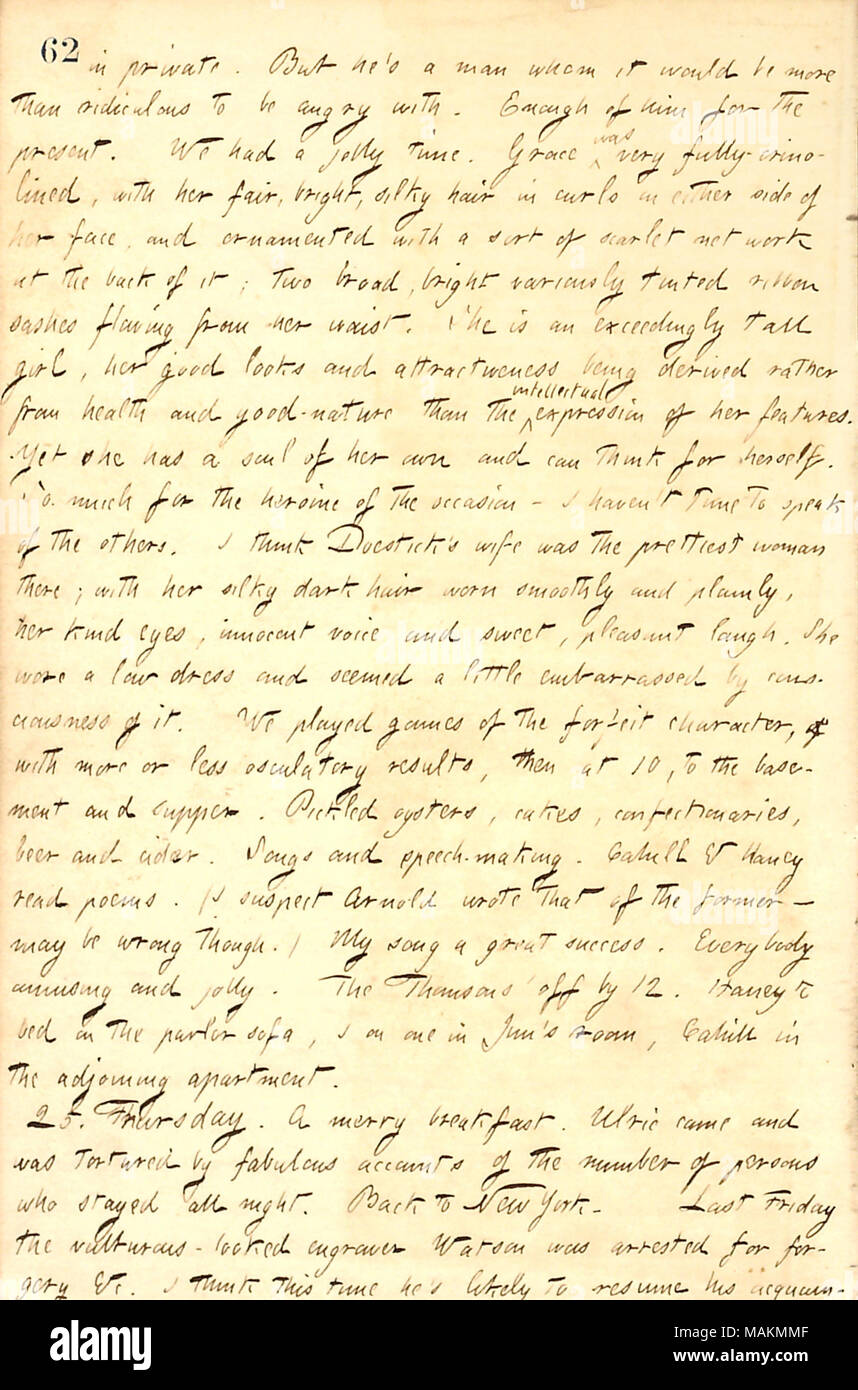 62
in private. But he's a man whom it would be more
than ridiculous to be angry with. Enough of him for the
present. We had a jolly time. Grace was very fully-crino-
lined, with her fair, bright, silky hair in curls on either side of
her face, and ornamented with a sort of scarlet net work
at the back of it; two broad, bright variously tinted ribbon
sashes flowing from her waist. She is an exceedingly tall
girl, her good looks and attractiveness being derived rather
from health and good-nature than the intellectual expression of her features.
Yet she has a soul of her own and can think for herself.
So much for the heroine of the occasion — I haven't time to speak
of the others. I think Doestick's wife was the prettiest woman
there; with her silky dark hair worn smoothly and plainly,
her kind eyes, innocent voice and sweet, pleasant laugh. She
wore a low dress and seemed a little embarrassed by cons-
ciousness of it. We played games of the forfeit character,
with more or less osculatory results, then at 10, to the base-
ment and supper. Pickled oysters, cakes, confectionaries,
beer and cider. Songs and speech-making. Cahill & Haney
read poems. (I suspect Arnold wrote that of the former —
may be wrong though.) My song a great success. Everybody
amusing and jolly. The Thomsons' off by 12. Haney to
bed on the parlor sofa, I on one in Jim's room, Cahill in
the adjoining apartment.
25. Thursday. A merry breakfast. Ulric came and
was tortured by fabulous accounts of the number of persons
who stayed all night. Back to New York. Last Friday
the vulturous-looked engraver Watson was arrested for for-
gery &c. I think this time he's likely to resume his acquain-
alamy
Image ID: MAKMMF
www.alamy.com